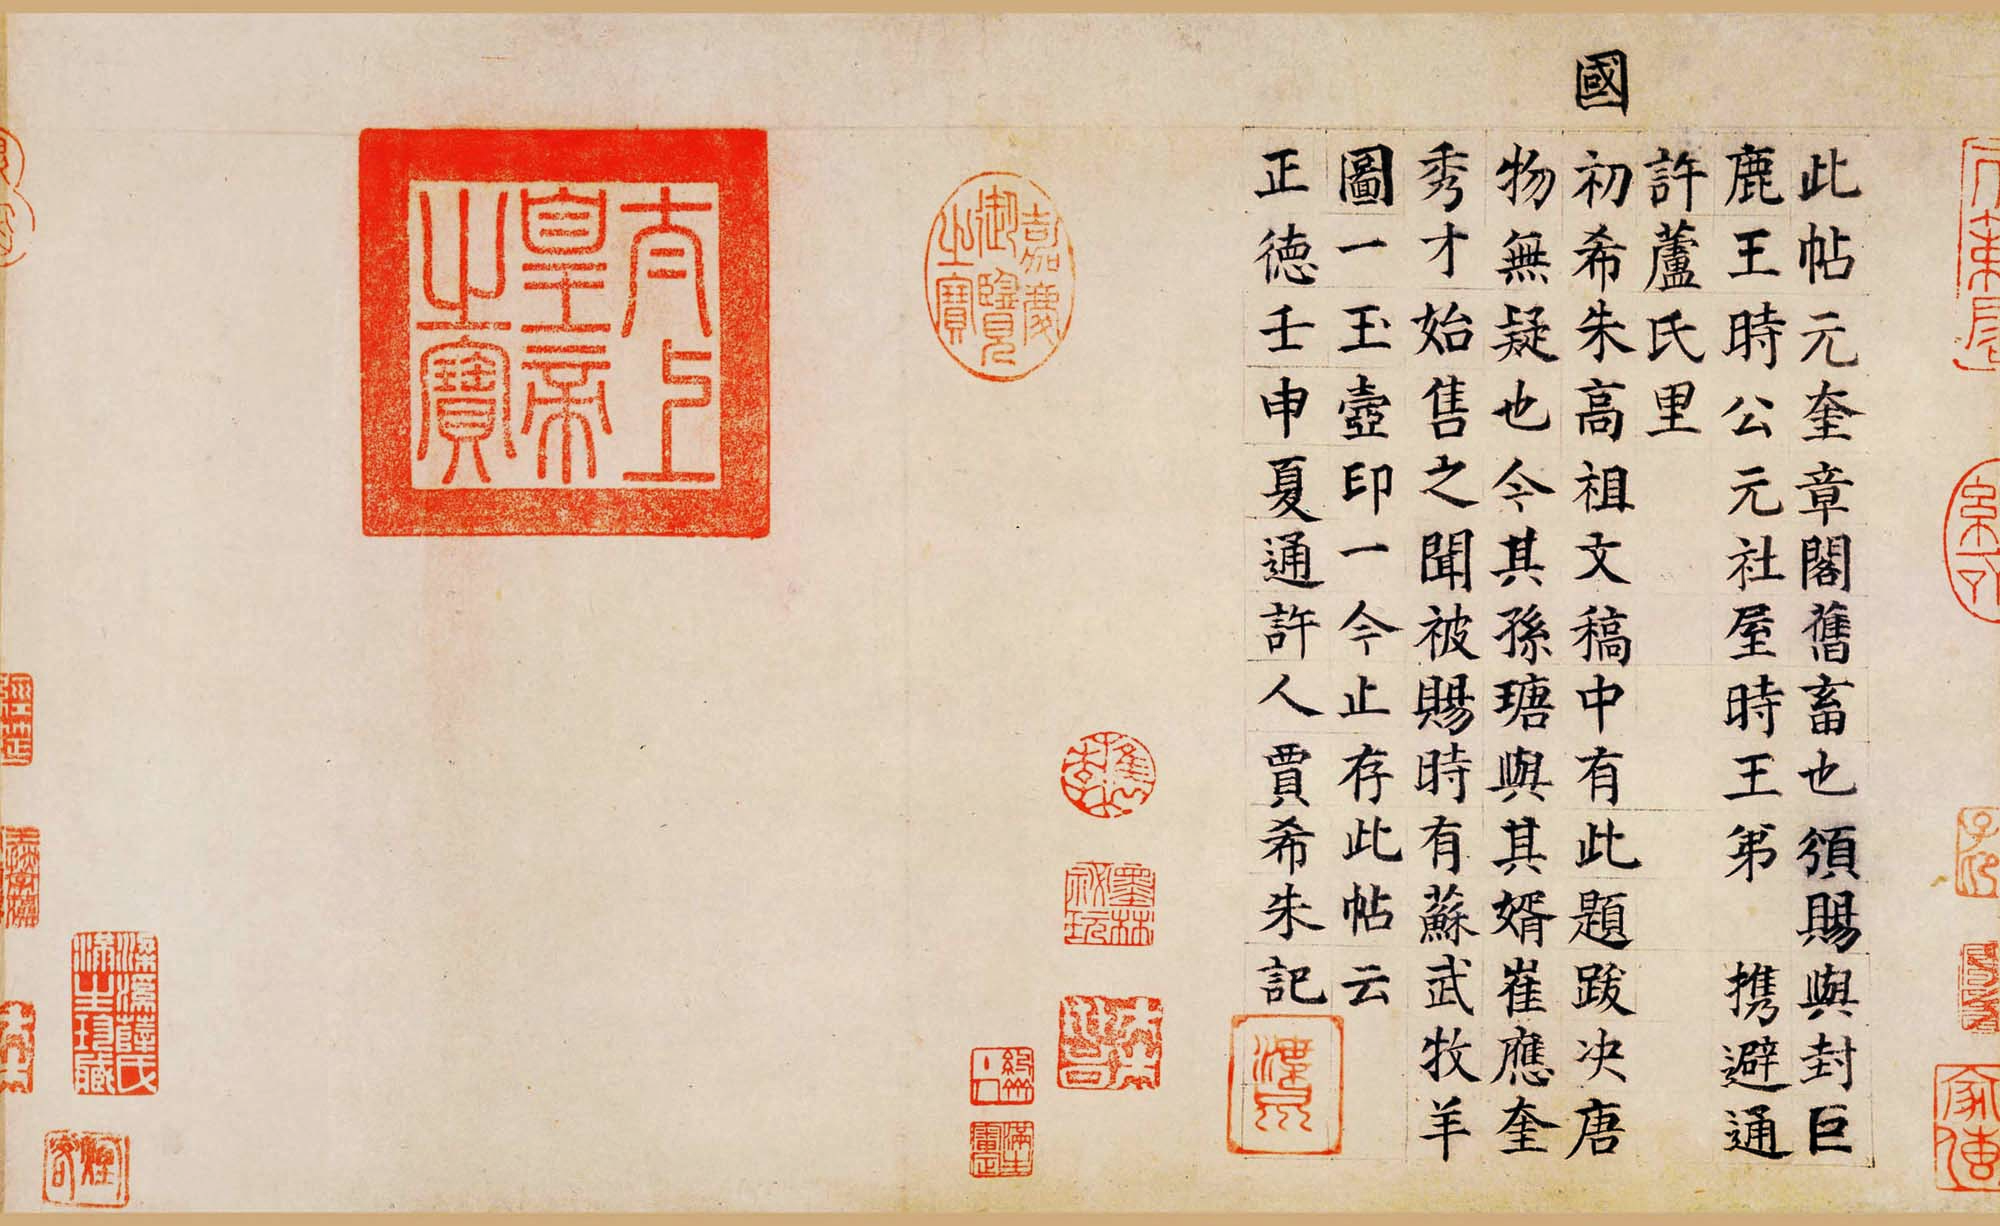 此帖元奎章閣舊畜也頒賜與封巨
鹿王時公元社屋時王弟携避通
許蘆氏里
國初希朱高祖文稿中有此題跋决唐
物無疑也今其孫瑭與其婿崔應奎
秀才始售之聞被賜時有蘇武牧羊
圖一玉壺印一今止存此帖云
正德壬申夏通許人賈希朱記
嘉慶御覽之寶
墨林祕玩
太上皇帝之寶